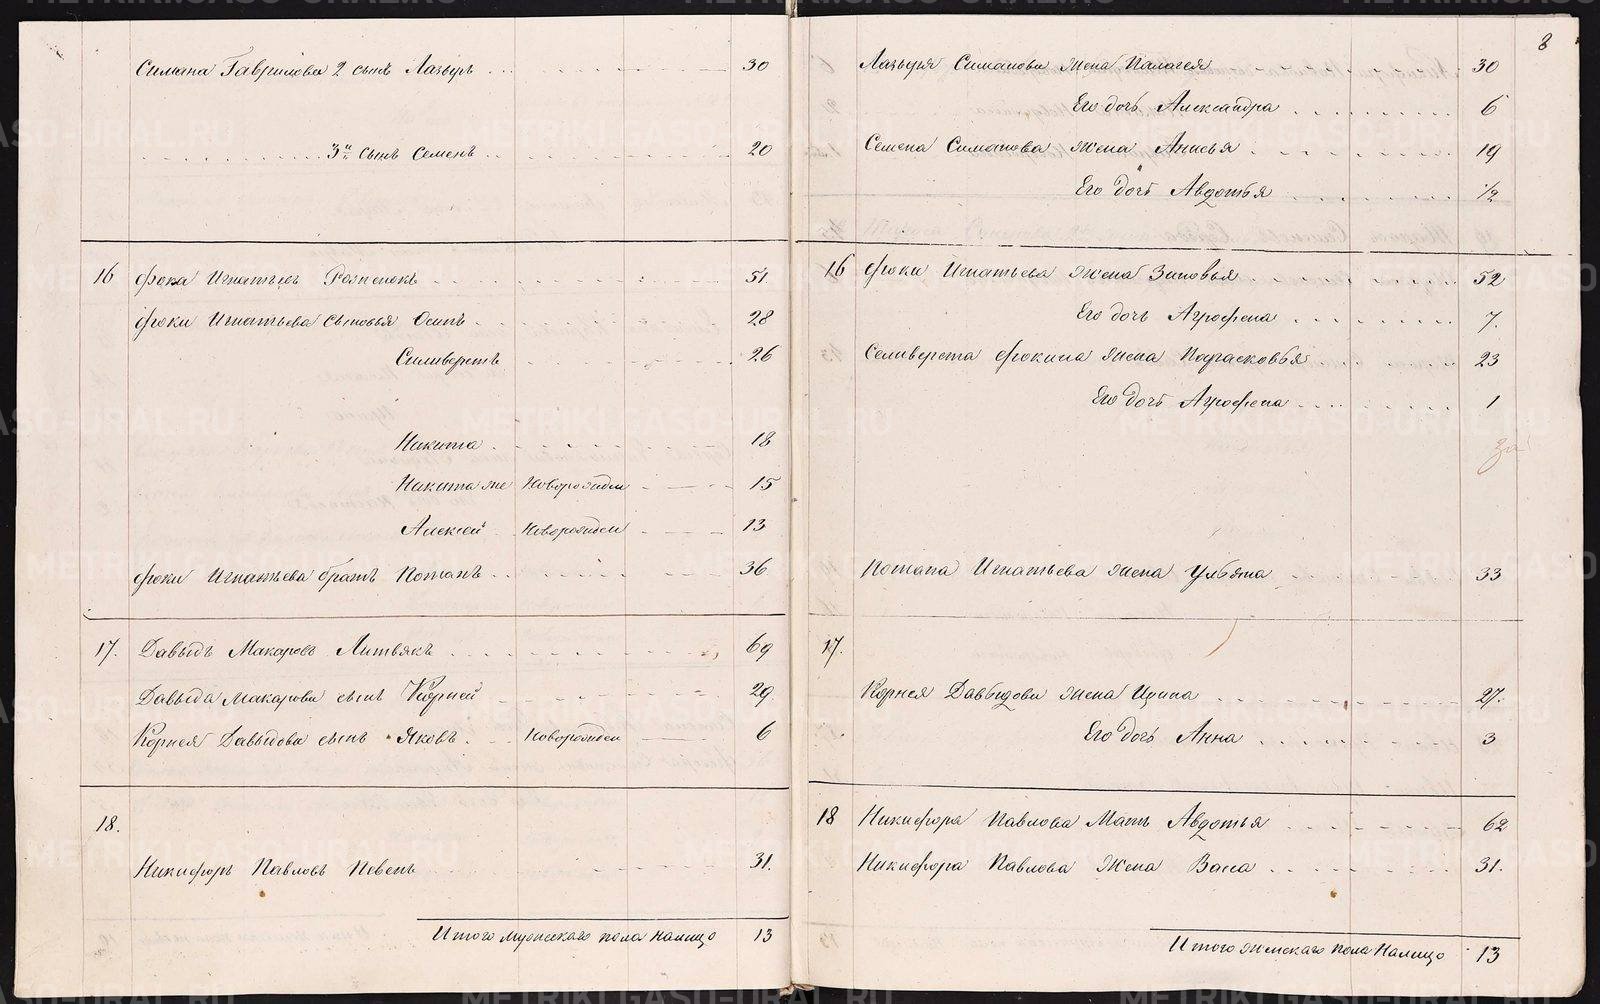 Симона Гаврилова 2 сынъ Лазырь 30
3й сынъ Семенъ 20
16 Фока Игнатьевъ 51.
Фоки Игнатьева сыновья Осипъ 28
Силиверстъ 26
Никита 18
Никита же Новорожден 15
Алексей Новорожден 13
Фоки Игнатьева братъ Потапъ 36
17. Давыдъ Макаровъ Литвякъ 69
Давыда Макарова сынъ Корней 29
Корнея Давыдова сынъ Яковъ Новорожден 6
18.
Никифоръ Павловъ Певень 31.
Итого мужескаго пола налицо 13
8
Лазыря Симонова жена Палагея 30
Его дочь Александра 6
Семена Симонова жена Анисья 19
Его дочь Авдотья 1/2
16 Фоки Игнатьева жена Зиновья 52
Его дочь Агрофена 7.
Селиверста Фокина жена Парасковья 23
Его дочь Агрофена 1
Потапа Игнатьева жена Ульяна 33
17.
Корнея Давыдова жена Ирина 27.
Его дочь Анна 3
18 Никифора Павлова Мать Авдотья 62
Никифора Павлова Жена Васса 31.
Итого женскаго пола налицо 13
METRIKI.GASO-URAL.RU